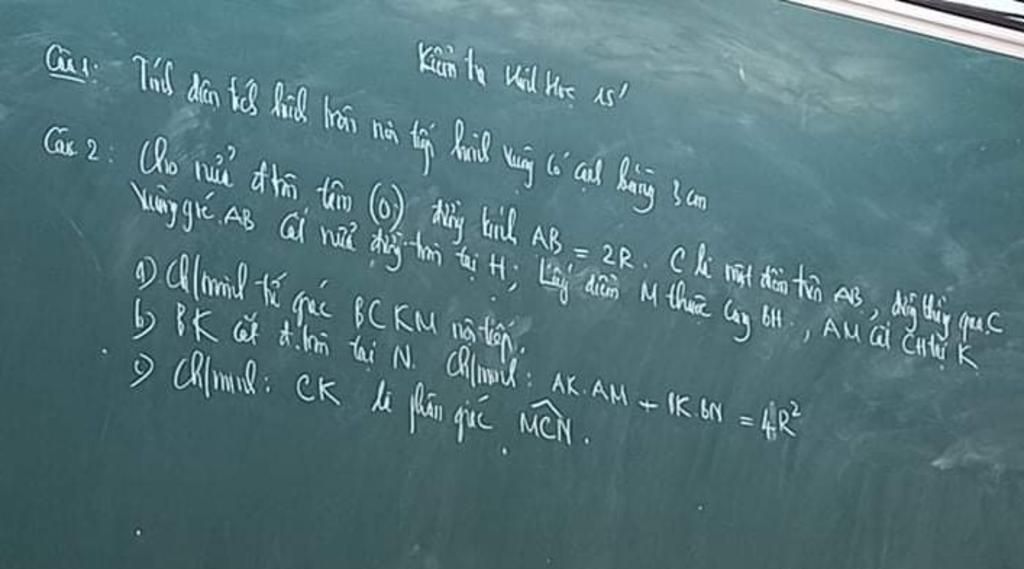 Kiểm tra Hình Học 15'
Câu 1: Tính diện tích hình tròn nội tiếp hình vuông có cạnh bằng 3 cm
Câu 2: Cho nửa đ.tròn tâm (O;) đường kính AB = 2R. C là một điểm trên AB, đường thẳng qua C
vuông góc AB cắt nửa đường tròn tại H; Lấy điểm M thuộc cung BH, AM cắt CH tại K
a) Ch/minh tứ giác BCKM nội tiếp.
b) BK cắt đ.tròn tại N. Ch/minh: AK.AM + BK.BN = 4R²
c) Ch/minh: CK là phân giác MCN.